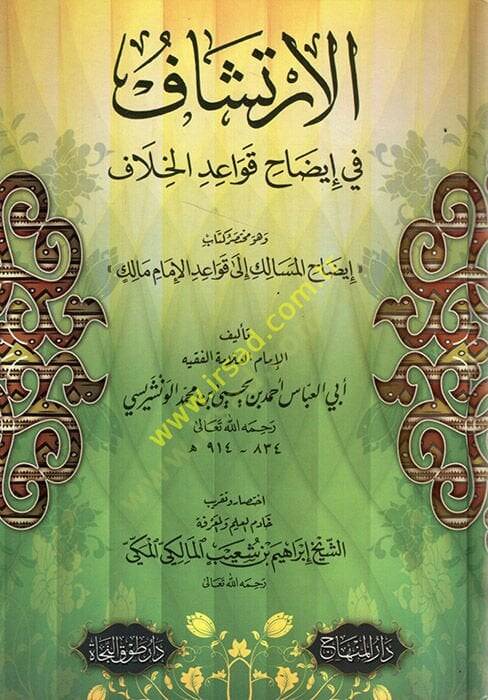 الارتشاف
في إيضاح قواعد الخلاف
وهو مختصر كتاب
«إيضاح المسالك إلى قواعد الإمام مالك»
تأليف
الإمام العلامة الفقيه
أبي العباس أحمد بن يحيى بن محمد الونشريسي
رحمه الله تعالى
٨٣٤ - ٩١٤ هـ
www.irsad.com.tr
اختصار وتقريب
خادم العلم والمعرفة
الشيخ إبراهيم بن شعيب المالكي المكي
رحمه الله تعالى
دار المنهاج
دار طوق النجاة